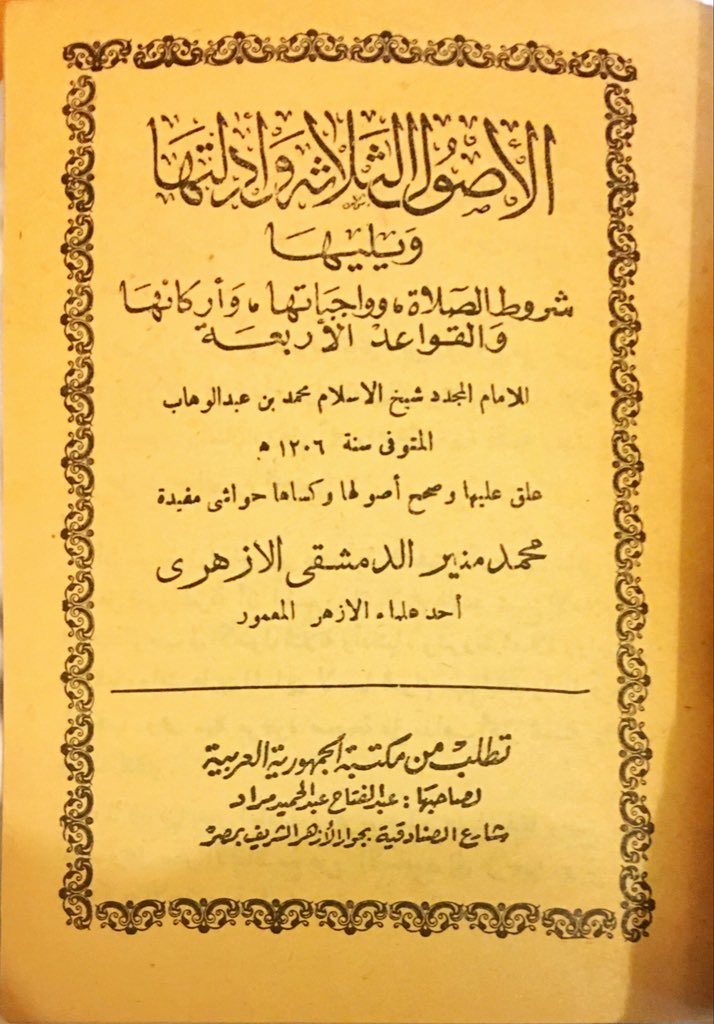 الأصول الثلاثه وأدلتها
ويليها
شروط الصلاة، وواجباتها، وأركانها
والقواعد الأربعة
للامام المجدد شيخ الاسلام محمد بن عبدالوهاب
المتوفى سنة ١٢٠٦ ه
علق عليها وصحح أصولها وكساها حواشى مفيدة
محمد منير الدمشقى الازهرى
أحد علماء الازهر المعمور
تطلب من مكتبة الجمهورية العربية
لصاحبها: عبدالفتاح عبدالحميد مراد
شارع الصنادقية بجوار الأزهر الشريف بمصر